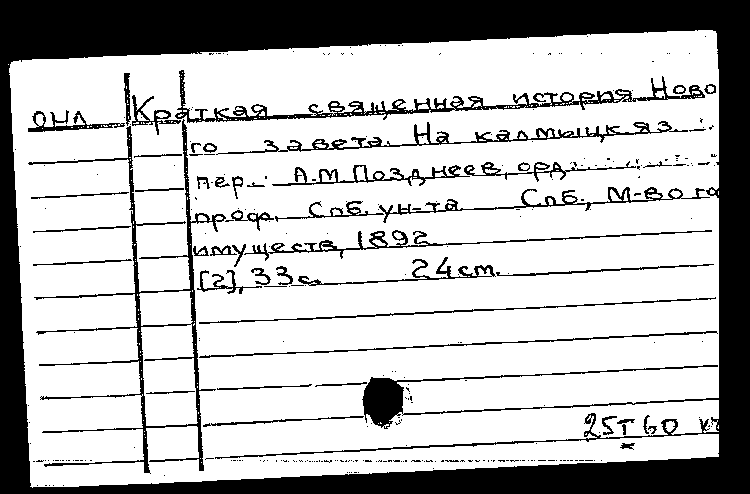 ОНЛ Краткая священная история Ново
го завета. На калмыцк яз.
пер.: А.М Позднеев, орд.
проф. Спб. ун-та Спб., М-во го
имуществ, 1892
[2], 33 с. 24 cm.
25Т60 кч